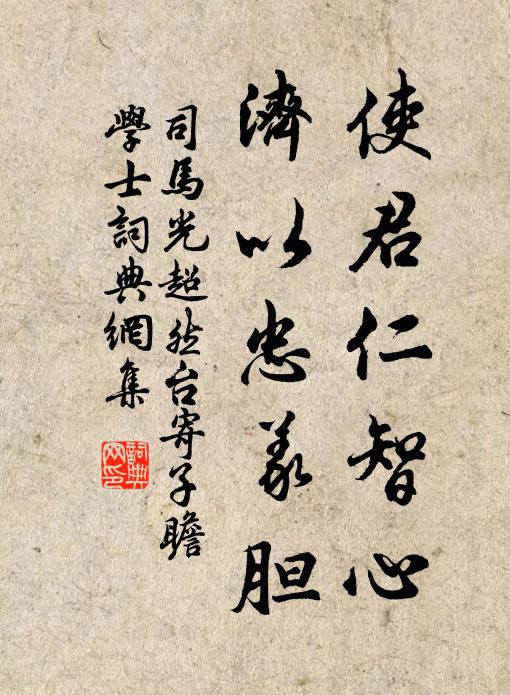 使君仁智心
濟以忠義胆
司馬光超然台寄子瞻
學士詞典網集
詞典網印